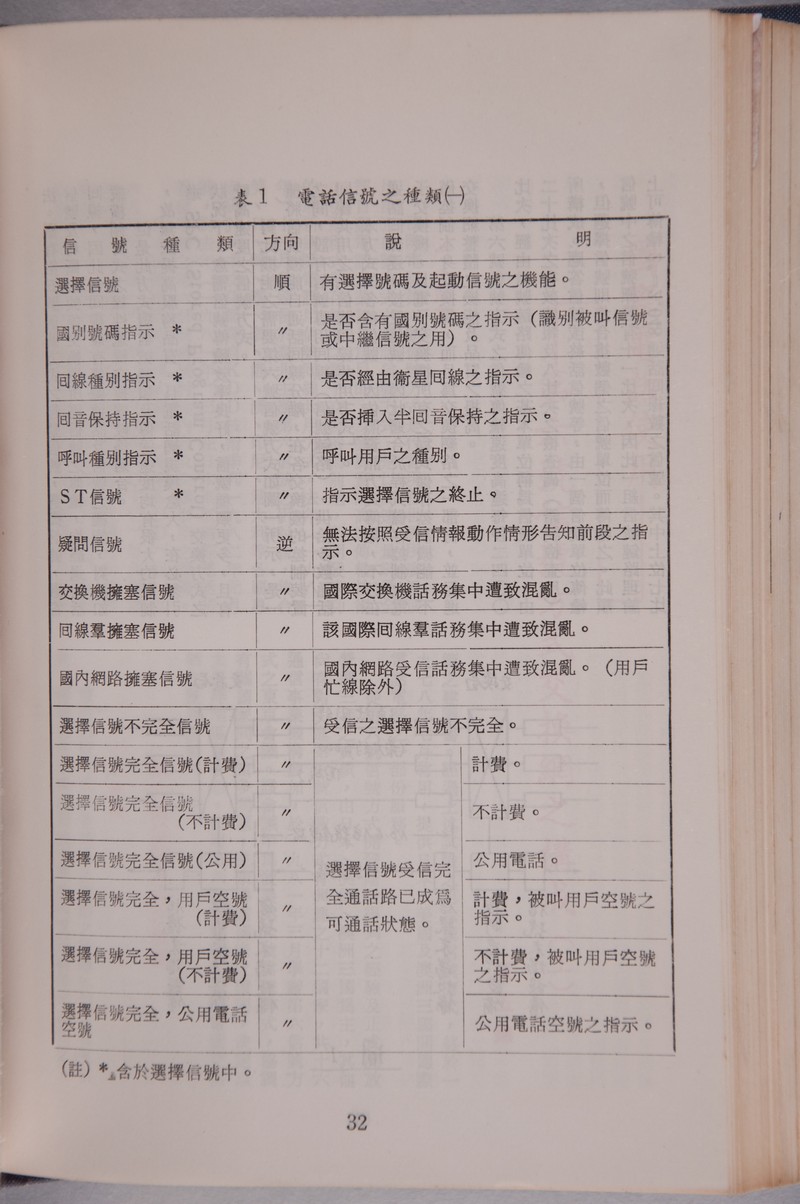 表1 電話信號之種類㈠
信號種類 方向 說明
選擇信號 順 有選擇號碼及起動信號之機能。
國別號碼指示 * 〃 是否含有國別號碼之指示（識別被叫信號
或中繼信號之用）。
回線種別指示 * 〃 是否經由衞星回線之指示。
回音保持指示 * 〃 是否揷入半回音保持之指示。
呼叫種別指示 * 〃 呼叫用戶之種別。
ST信號 * 〃 指示選擇信號之終止。
疑問信號 逆 無法按照受信情報動作情形告知前段之指
示。
交換機擁塞信號 〃 國際交換機話務集中遭致混亂。
回線羣擁塞信號 〃 該國際回線羣話務集中遭致混亂。
國內網路擁塞信號 〃 國內網路受信話務集中遭致混亂。（用戶
忙線除外）
選擇信號不完全信號 〃 受信之選擇信號不完全。
選擇信號完全信號(計費) 〃 計費。
選擇信號完全信號
(不計費) 〃 不計費。
選擇信號完全信號(公用) 〃 公用電話。
選擇信號受信完
全通話路已成爲
可通話狀態。
選擇信號完全，用戶空號
(計費) 〃 計費，被叫用戶空號之
指示。
選擇信號完全，用戶空號
(不計費) 〃 不計費，被叫用戶空號
之指示。
選擇信號完全，公用電話
空號 〃 公用電話空號之指示。
（註）*含於選擇信號中。
32